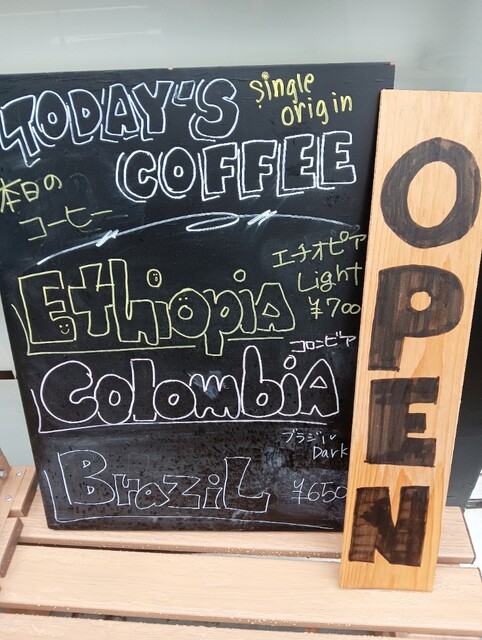 TODAY'S
single
origin
COFFEE
本日の
コーヒー
エチオピア
Light
¥700
Ethiopia
コロンビア
Colombia
ブラジル
Dark
Brazil
¥650
OPEN